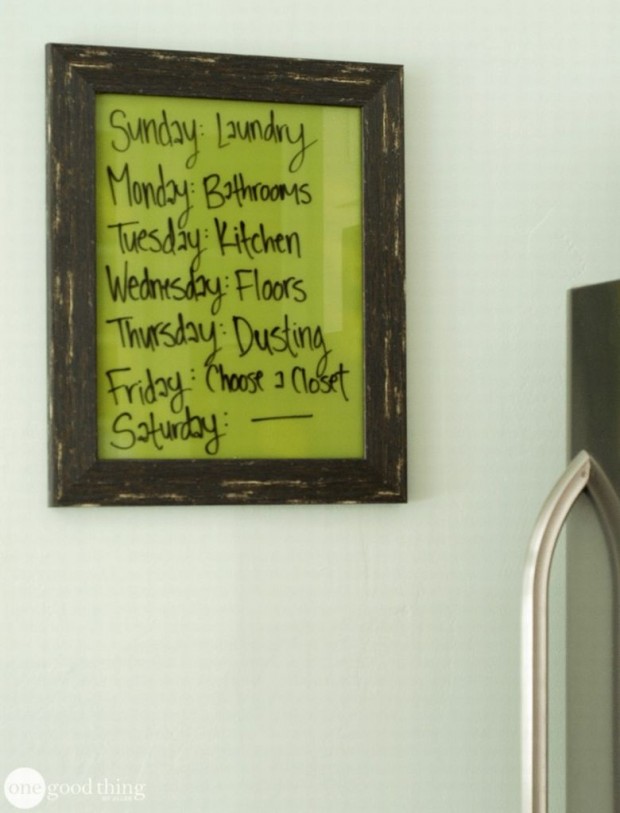 Sunday: Laundry
Monday: Bathrooms
Tuesday: Kitchen
Wednesday: Floors
Thursday: Dusting
Friday: Choose a Closet
Saturday: ——
one good thing